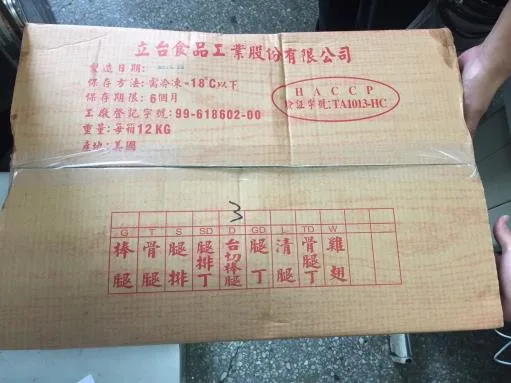 立台食品工業股份有限公司
製造日期:
保存方法:需冷凍-18℃以下
保存期限:6個月
工廠登記字號:99-618602-00
重量:每箱12KG
產地:美國
HACCP
驗証字號:TA1013-HC
3
G T S SD D GD L TD W
棒腿 骨腿 腿排 腿排丁 台切棒腿 腿丁 清腿 骨腿丁 雞翅